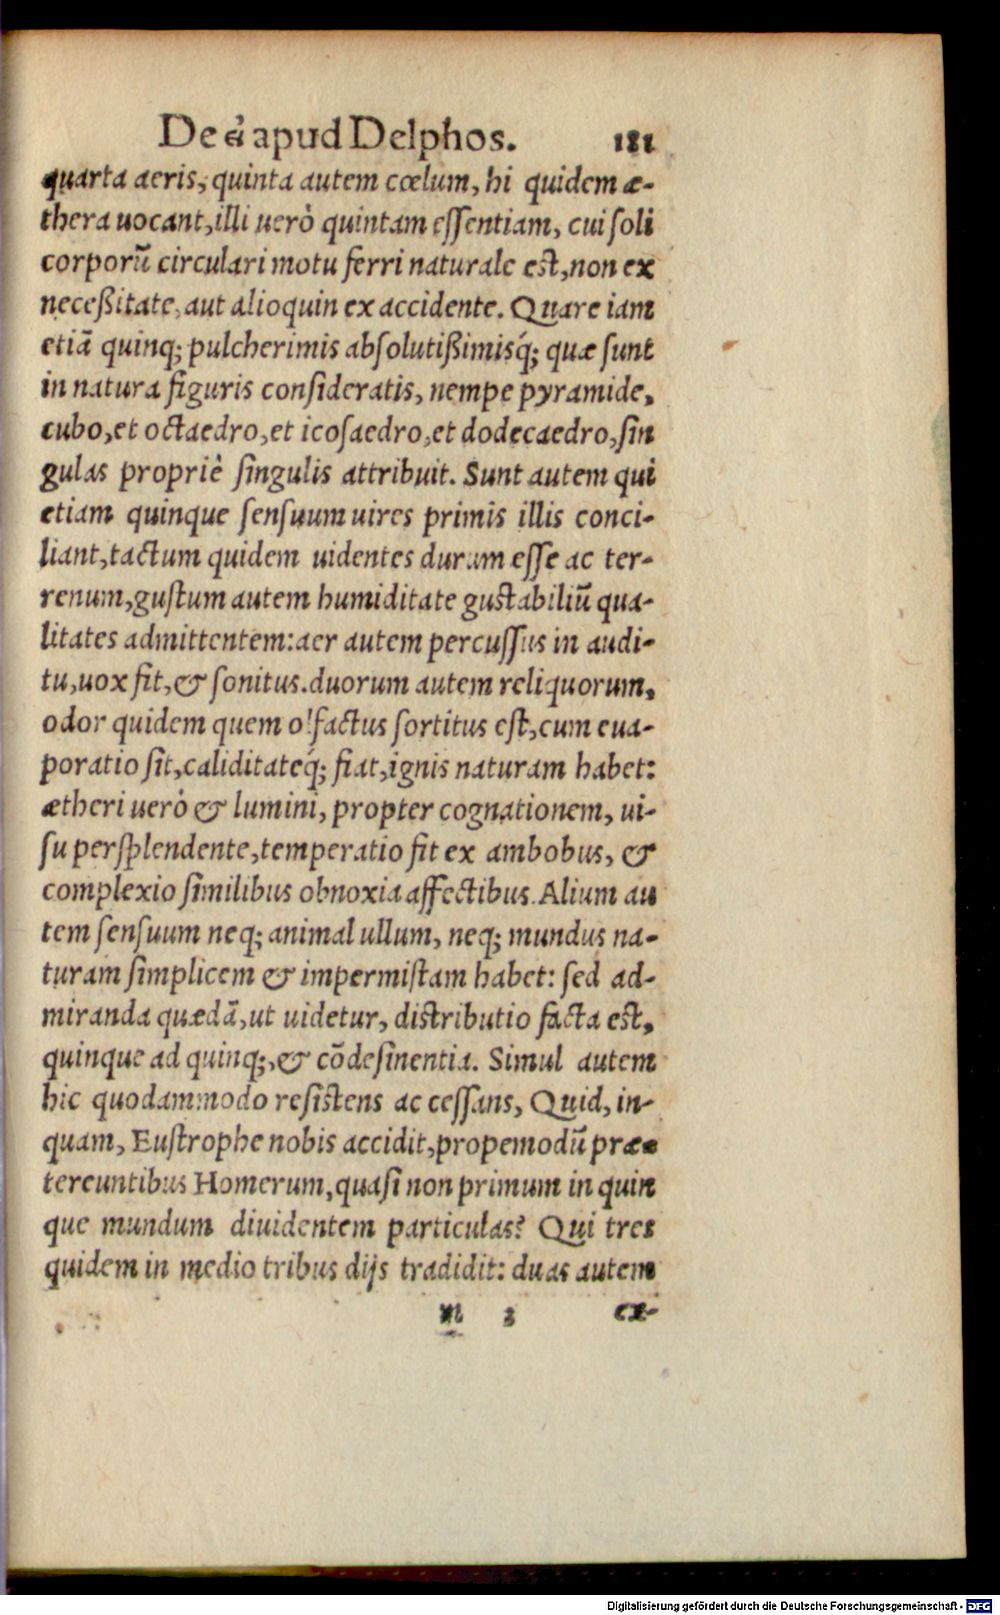 De εἰ apud Delphos. 181
quarta aeris, quinta autem cœlum, hi quidem æ-
thera uocant, illi uerò quintam eſſentiam, cui ſoli
corporũ circulari motu ferri naturale eſt, non ex
neceßitate, aut alioquin ex accidente. Quare iam
etiã quinq; pulcherimis abſolutißimisq́; quæ ſunt
in natura figuris conſideratis, nempe pyramide,
cubo, et octaedro, et icoſaedro, et dodecaedro, ſin
gulas propriè ſingulis attribuit. Sunt autem qui
etiam quinque ſenſuum uires primis illis conci-
liant, tactum quidem uidentes durum eſſe ac ter-
renum, guſtum autem humiditate guſtabiliũ qua-
litates admittentem: aer autem percuſſus in audi-
tu, uox fit, & ſonitus. duorum autem reliquorum,
odor quidem quem olfactus ſortitus eſt, cum eua-
poratio ſit, caliditateq́; fiat, ignis naturam habet:
ætheri uerò & lumini, propter cognationem, ui-
ſu perſplendente, temperatio fit ex ambobus, &
complexio ſimilibus obnoxia affectibus. Alium au
tem ſenſuum neq; animal ullum, neq; mundus na-
turam ſimplicem & impermiſtam habet: ſed ad-
miranda quædã, ut uidetur, diſtributio facta eſt,
quinque ad quinq;, & cõdeſinentia. Simul autem
hic quodammodo reſiſtens ac ceſſans, Quid, in-
quam, Euſtrophe nobis accidit, propemodũ præ-
tereuntibus Homerum, quaſi non primum in quin
que mundum diuidentem particulas? Qui tres
quidem in medio tribus dijs tradidit: duas autem
m 3 ex-
Digitalisierung gefördert durch die Deutsche Forschungsgemeinschaft - DFG